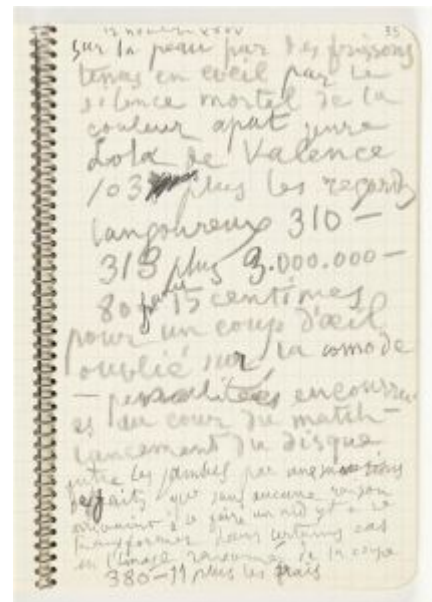 35
sur la peau par des frissons
tenus en eveil par le
silence mortel de la
couleur apat genre
Lola de Valence
103 plus les regards
langoureux 310 —
313 plus 3.000.000 —
80 15 centimes
pour un coup d'œil
oublié sur la comode
— penalitées encourru
es au cour du match —
lancement du disque
entre les jambes par une
des faits que sans aucune raison
arrivaient à se faire un nid et a se
transformer dans certains cas
en l'image de la coupe
380 — 11 plus les frais